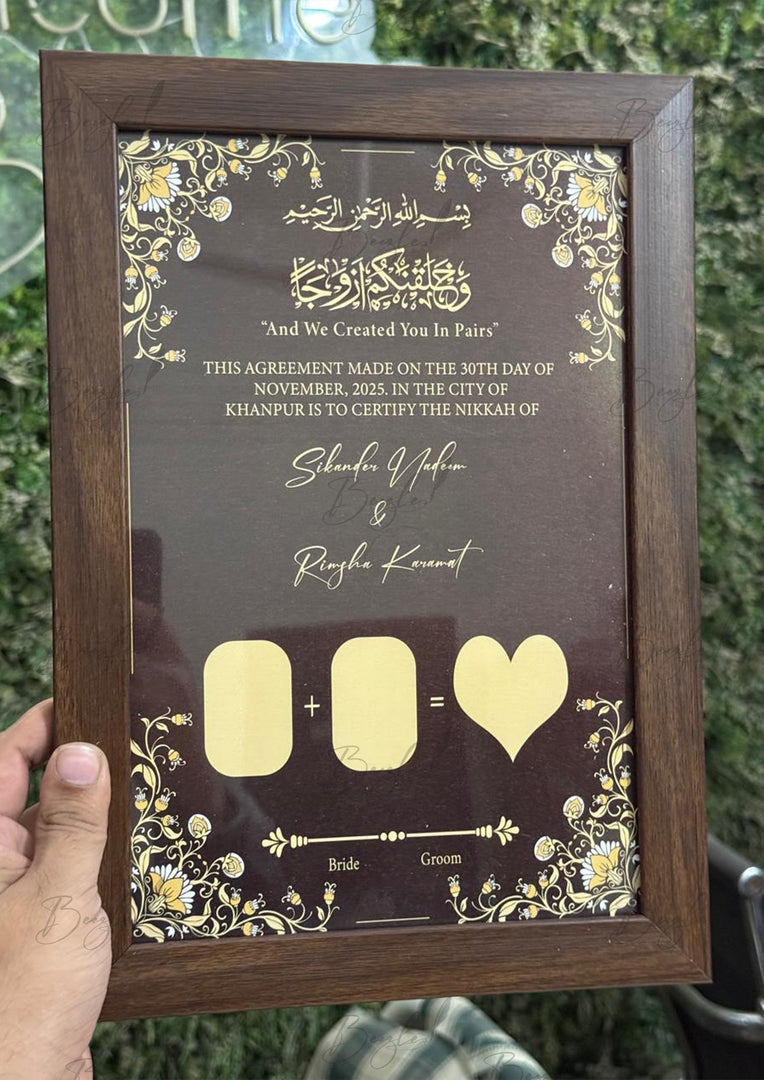 come
بِسْمِ اللهِ الرَّحْمٰنِ الرَّحِيْمِ
وَخَلَقْنٰكُمْ اَزْوَاجًا
“And We Created You In Pairs”
THIS AGREEMENT MADE ON THE 30TH DAY OF
NOVEMBER, 2025. IN THE CITY OF
KHANPUR IS TO CERTIFY THE NIKKAH OF
Sikander Nadeem
&
Rimsha Karamat
+ =
Bride Groom